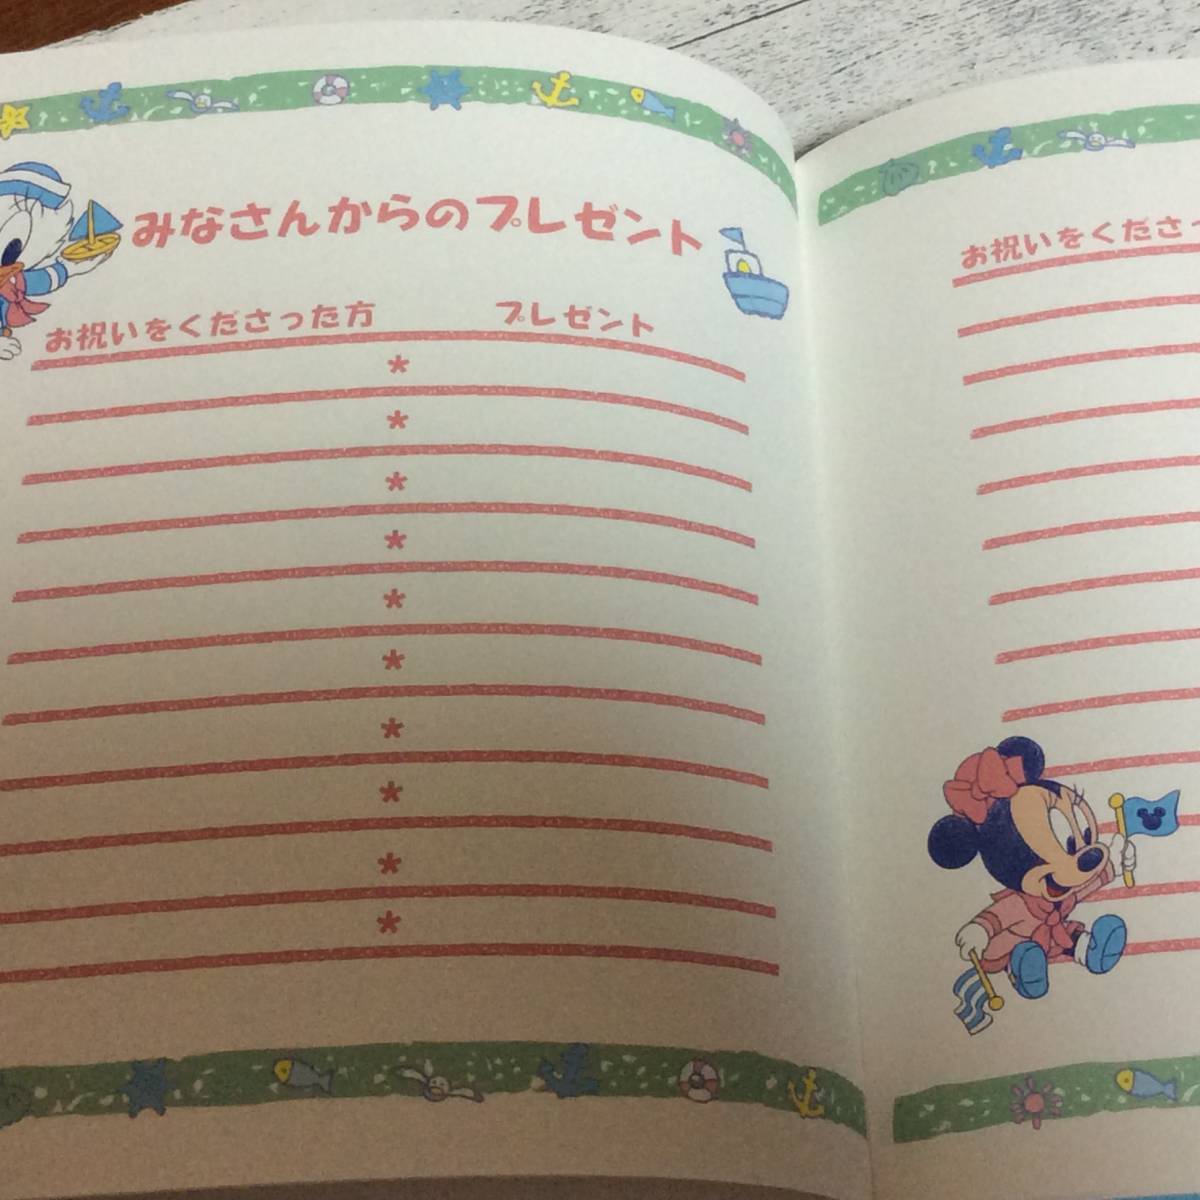 みなさんからのプレゼント
お祝いをくださった方 プレゼント
*
*
*
*
*
*
*
*
*
*
お祝いをくださっ